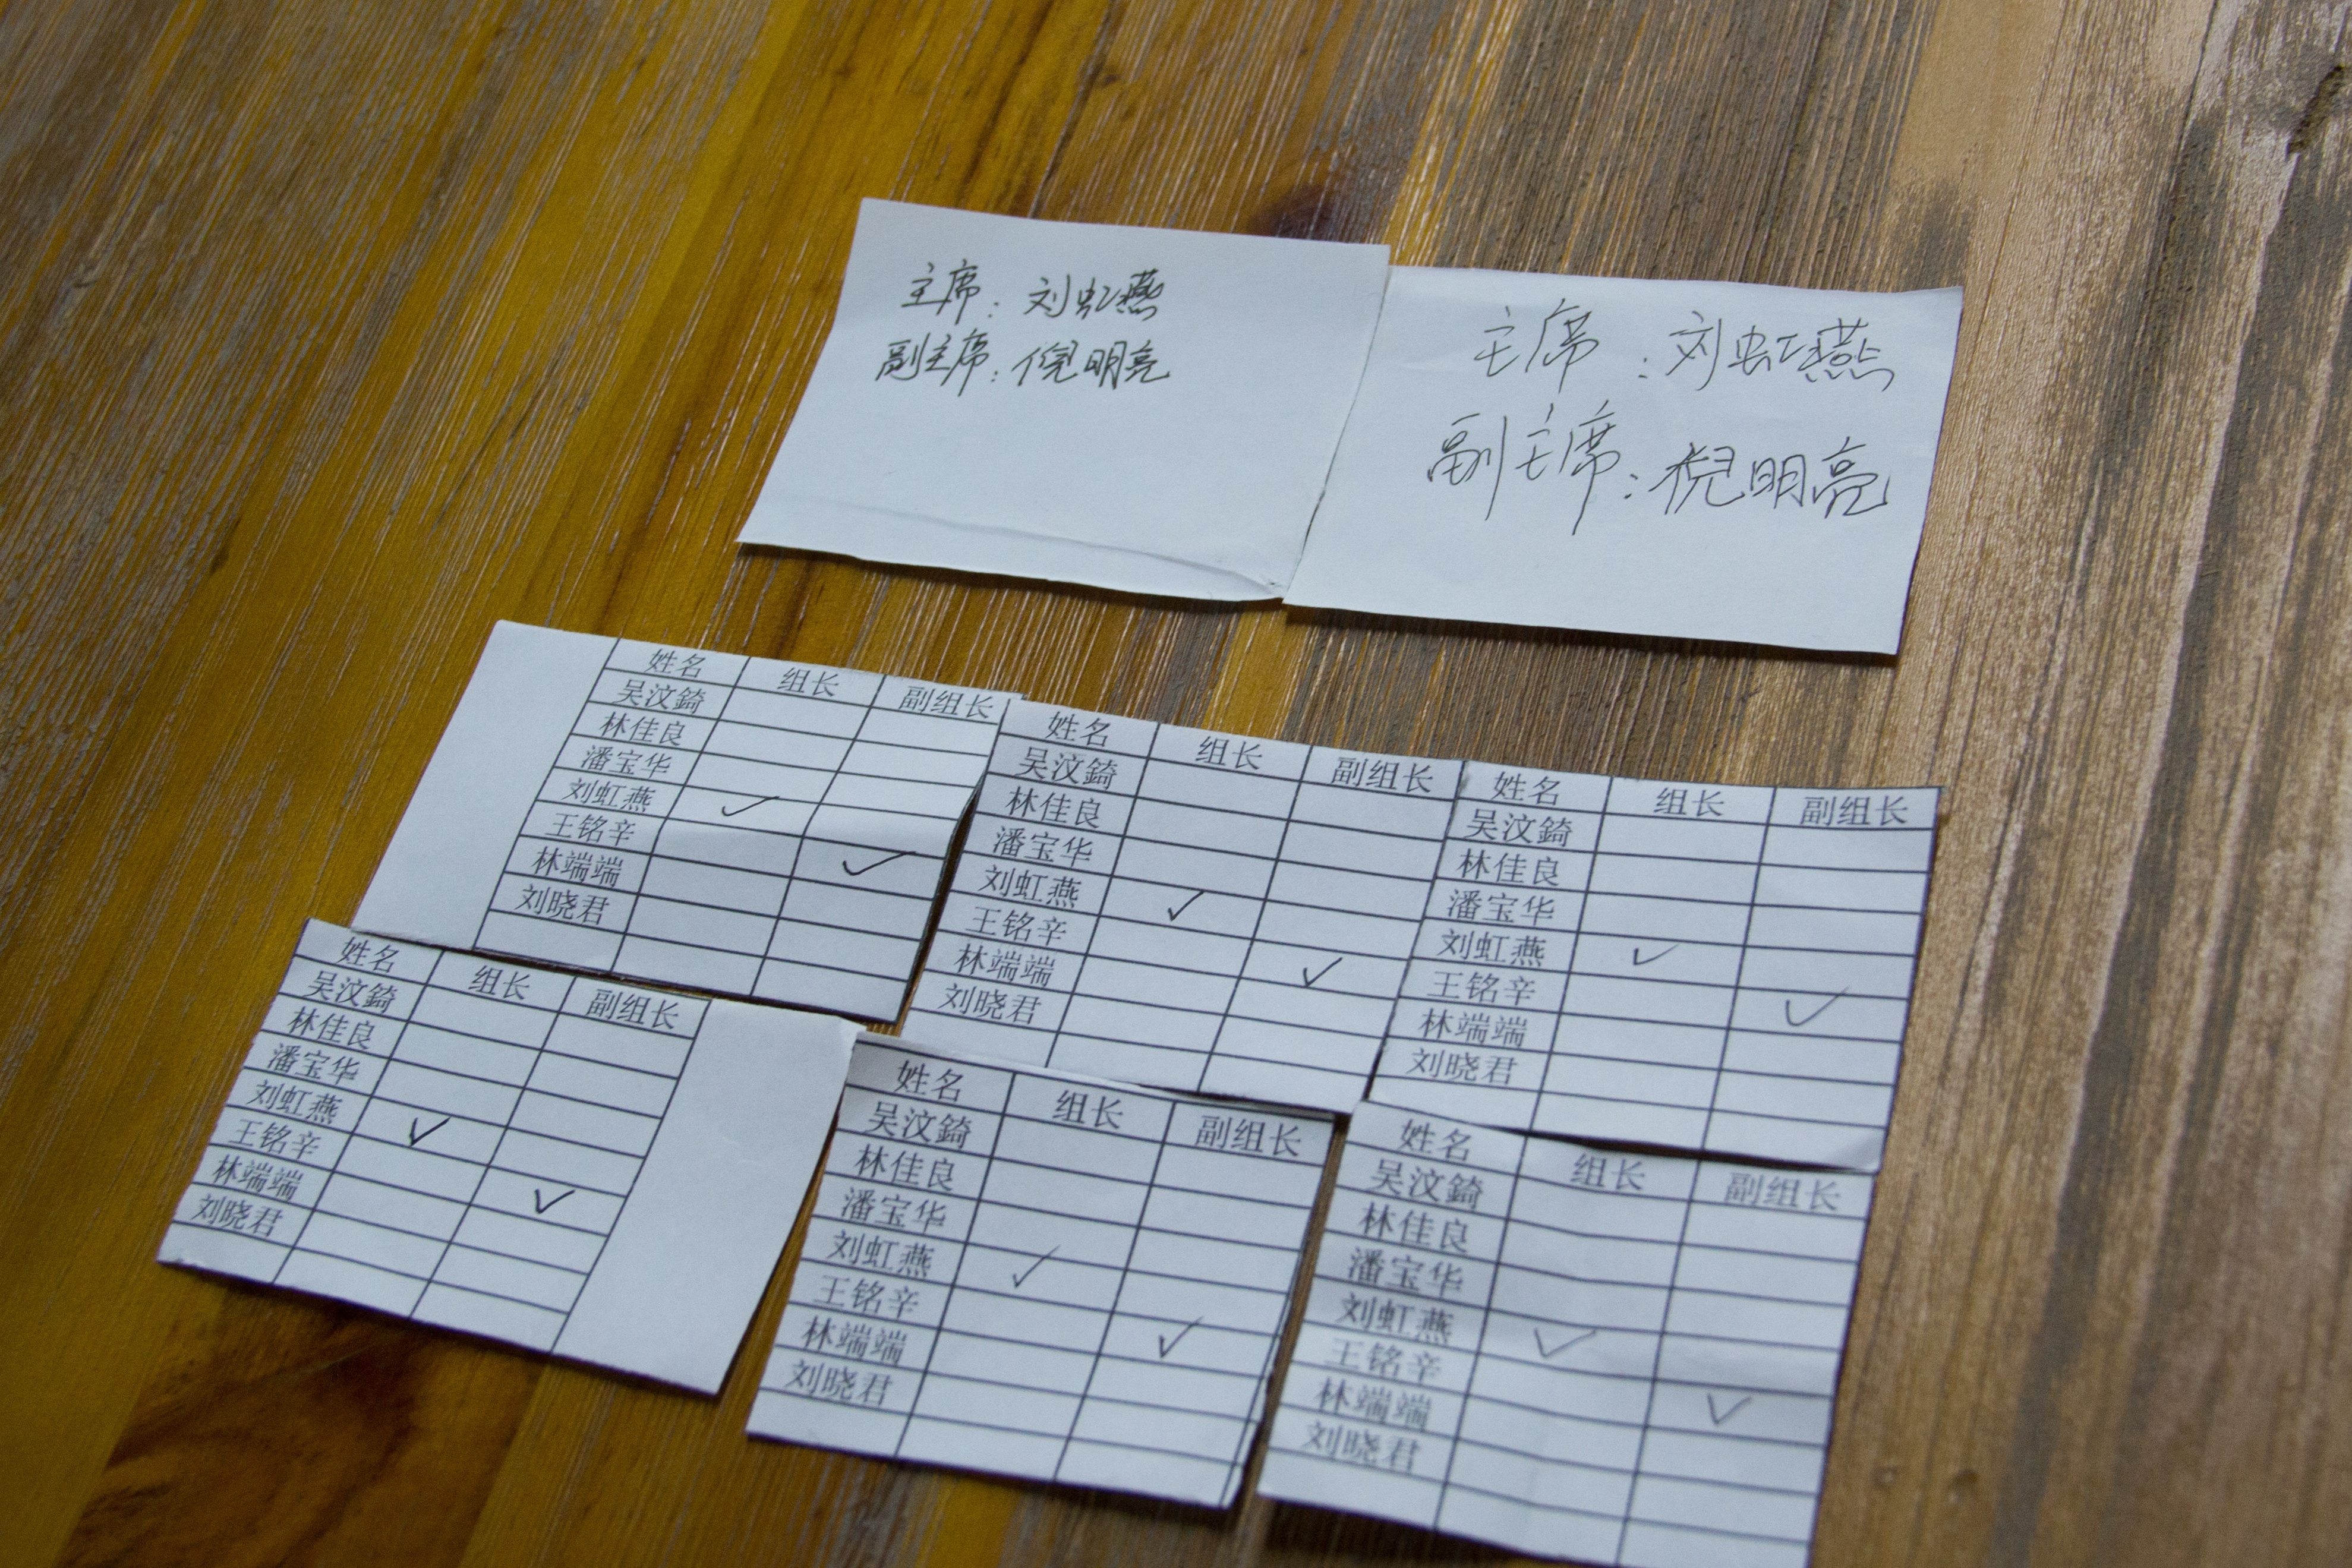 主席：刘虹燕
副主席：倪明亮
主席：刘虹燕
副主席：倪明亮
姓名 组长 副组长
吴汶錡
林佳良
潘宝华
刘虹燕 ✓
王铭辛 ✓
林端端
刘晓君
姓名 组长 副组长
吴汶錡
林佳良
潘宝华
刘虹燕 ✓
王铭辛 ✓
林端端
刘晓君
姓名 组长 副组长
吴汶錡
林佳良
潘宝华
刘虹燕 ✓
王铭辛 ✓
林端端
刘晓君
姓名 组长 副组长
吴汶錡
林佳良
潘宝华
刘虹燕 ✓
王铭辛 ✓
林端端
刘晓君
姓名 组长 副组长
吴汶錡
林佳良
潘宝华
刘虹燕 ✓
王铭辛 ✓
林端端
刘晓君
姓名 组长 副组长
吴汶錡
林佳良
潘宝华
刘虹燕 ✓
王铭辛 ✓
林端端
刘晓君